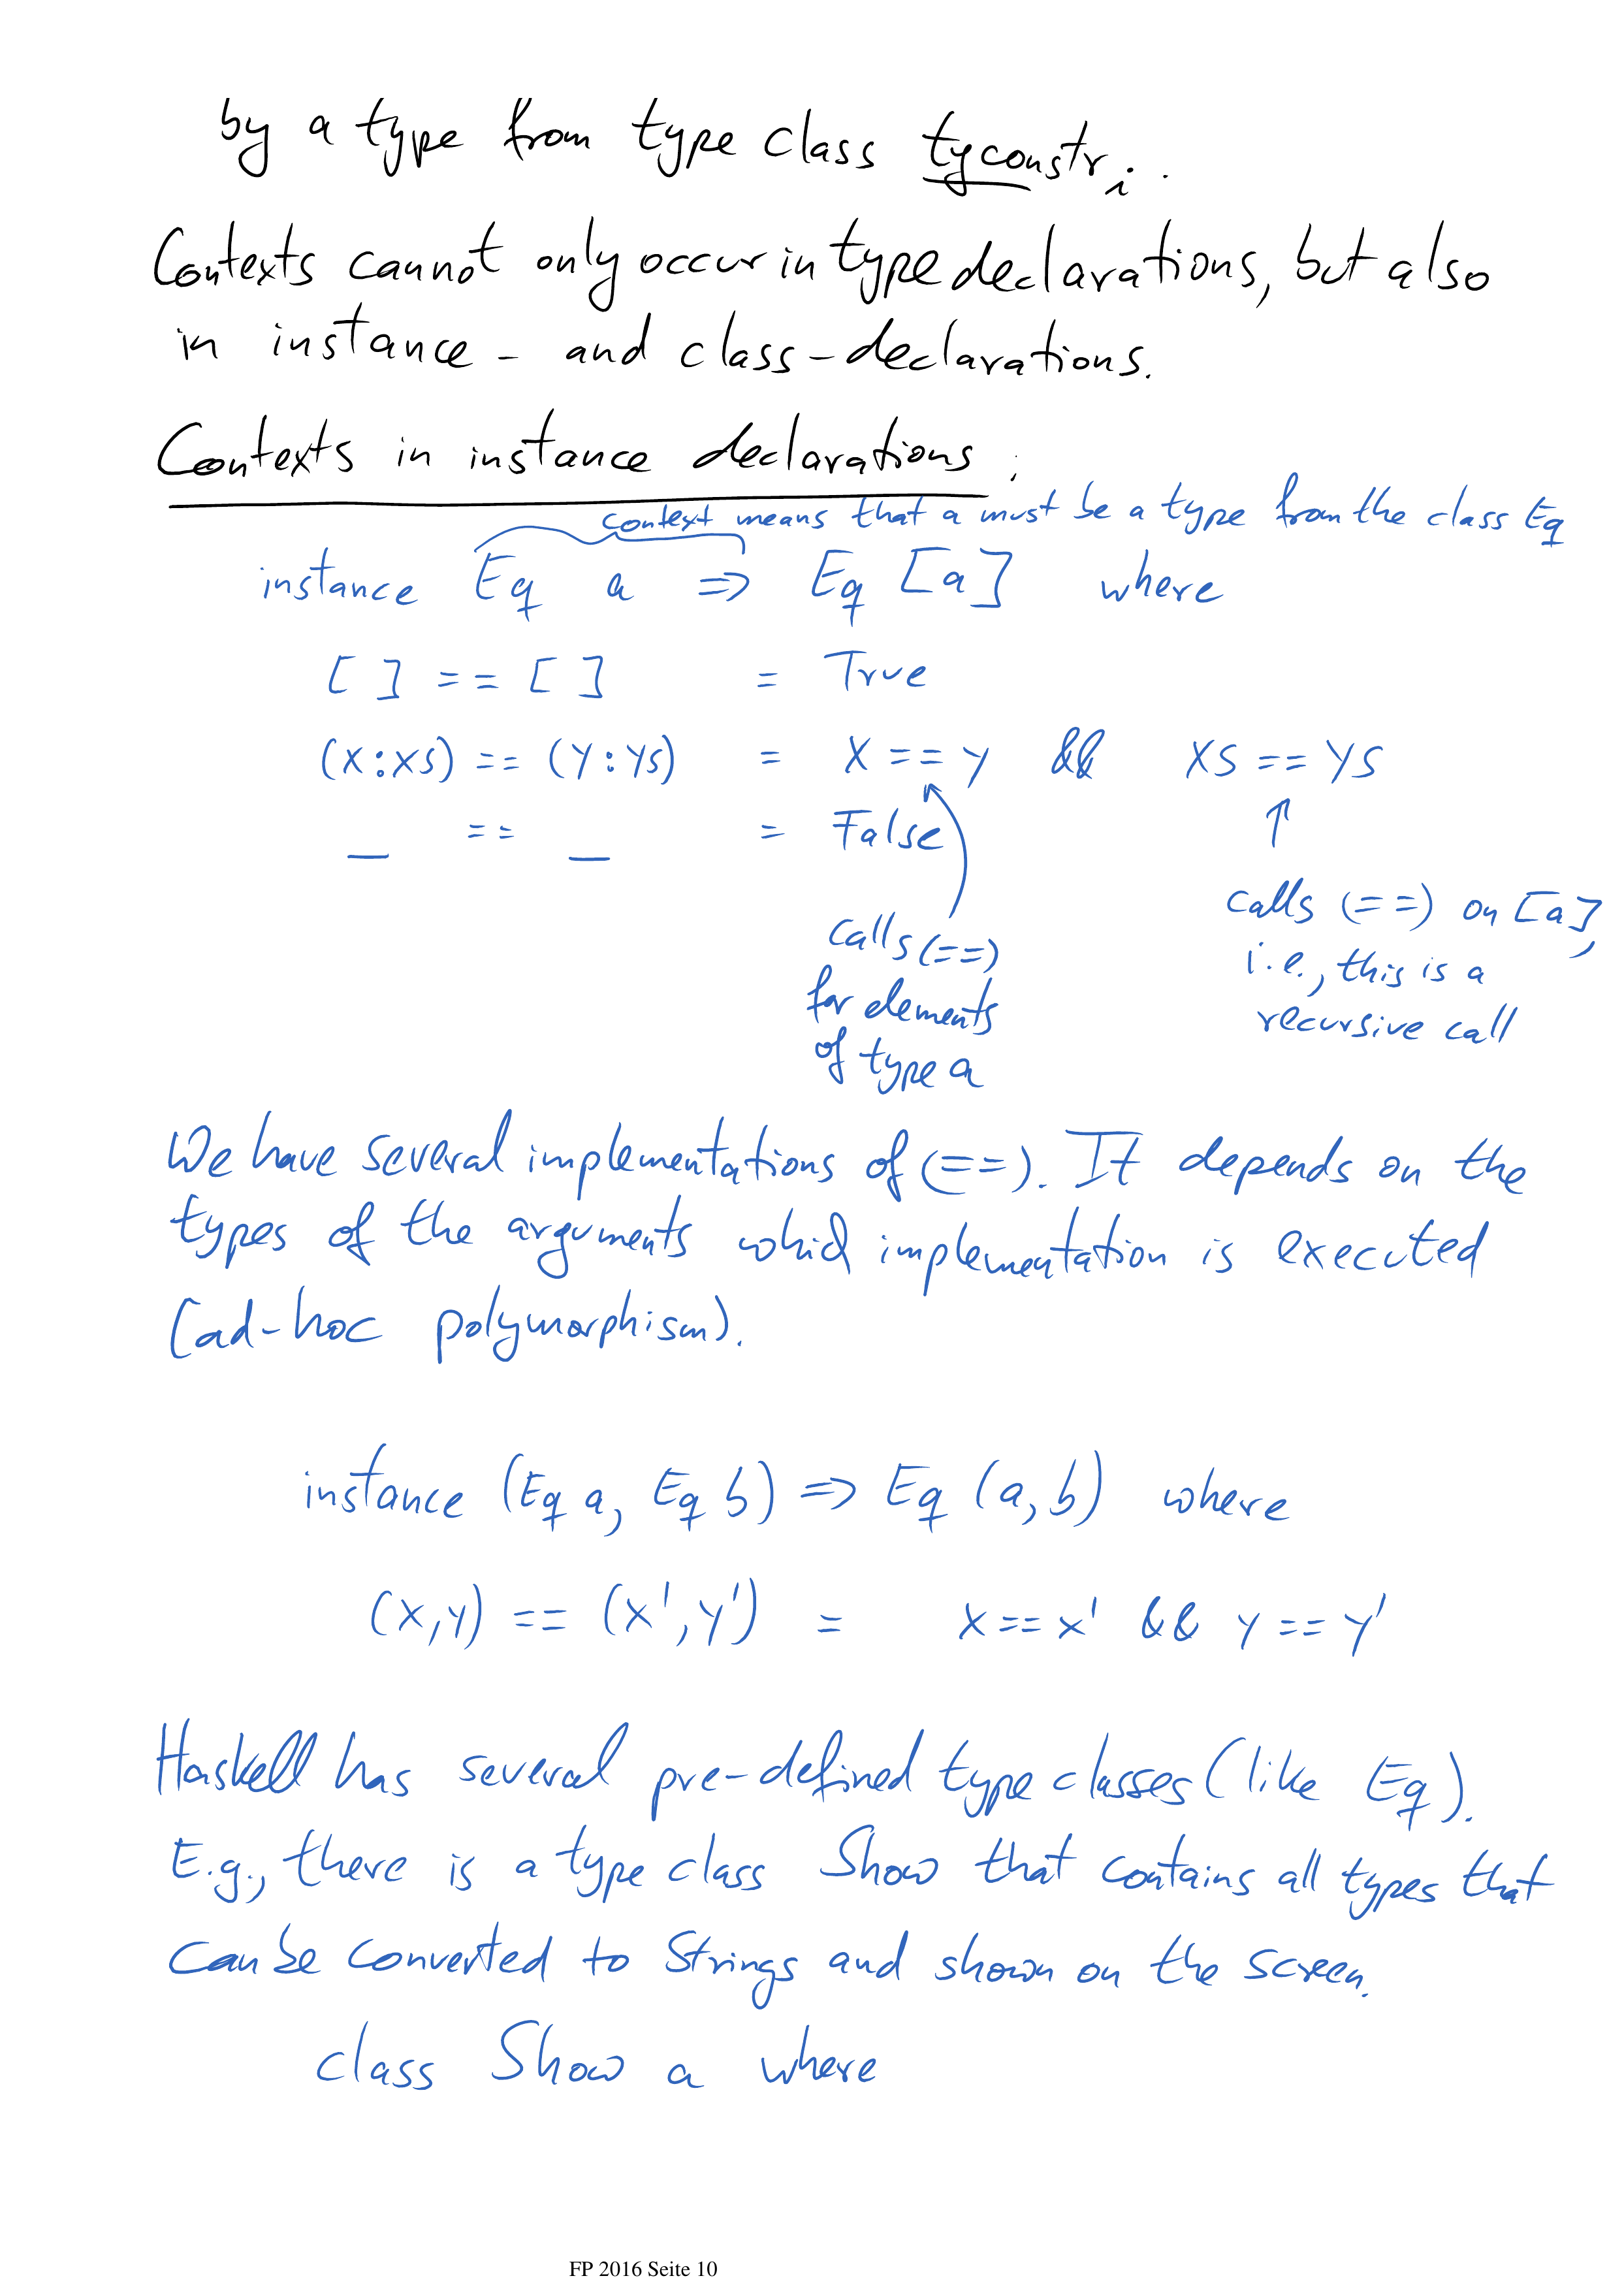 by a type from type class tyconstr_i.
Contexts cannot only occur in type declarations, but also
in instance- and class-declarations.
Contexts in instance declarations:
context means that a must be a type from the class Eq
instance Eq a => Eq [a] where
[ ] == [ ] = True
(x:xs) == (y:ys) = x == y && xs == ys
_ == _ = False
calls (==)
for elements
of type a
calls (==) on [a],
i.e., this is a
recursive call
We have several implementations of (==). It depends on the
types of the arguments which implementation is executed
(ad-hoc polymorphism).
instance (Eq a, Eq b) => Eq (a, b) where
(x,y) == (x',y') = x == x' && y == y'
Haskell has several pre-defined type classes (like Eq).
E.g., there is a type class Show that contains all types that
can be converted to Strings and shown on the screen.
class Show a where
FP 2016 Seite 10